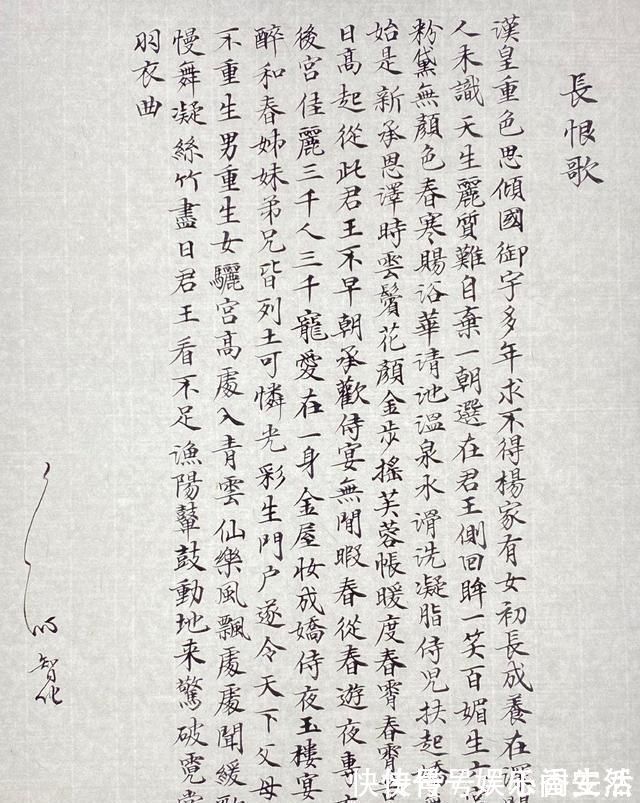 長恨歌
漢皇重色思傾國御宇多年求不得楊家有女初長成養在深
人未識天生麗質難自棄一朝選在君王側回眸一笑百媚生六
粉黛無顏色春寒賜浴華清池溫泉水滑洗凝脂侍児扶起嬌
始是新承恩澤時雲鬢花顏金步搖芙蓉帳暖度春宵春宵
日高起從此君王不早朝承歡侍宴無閒暇春從春遊夜專
後宮佳麗三千人三千寵愛在一身金屋妝成嬌侍夜玉樓宴
醉和春姊妹弟兄皆列土可憐光彩生門户遂令天下父母
不重生男重生女驪宮高處入青雲仙樂風飄處處聞緩歌
慢舞凝絲竹盡日君王看不足漁陽鼙鼓動地来驚破霓裳
羽衣曲
智化